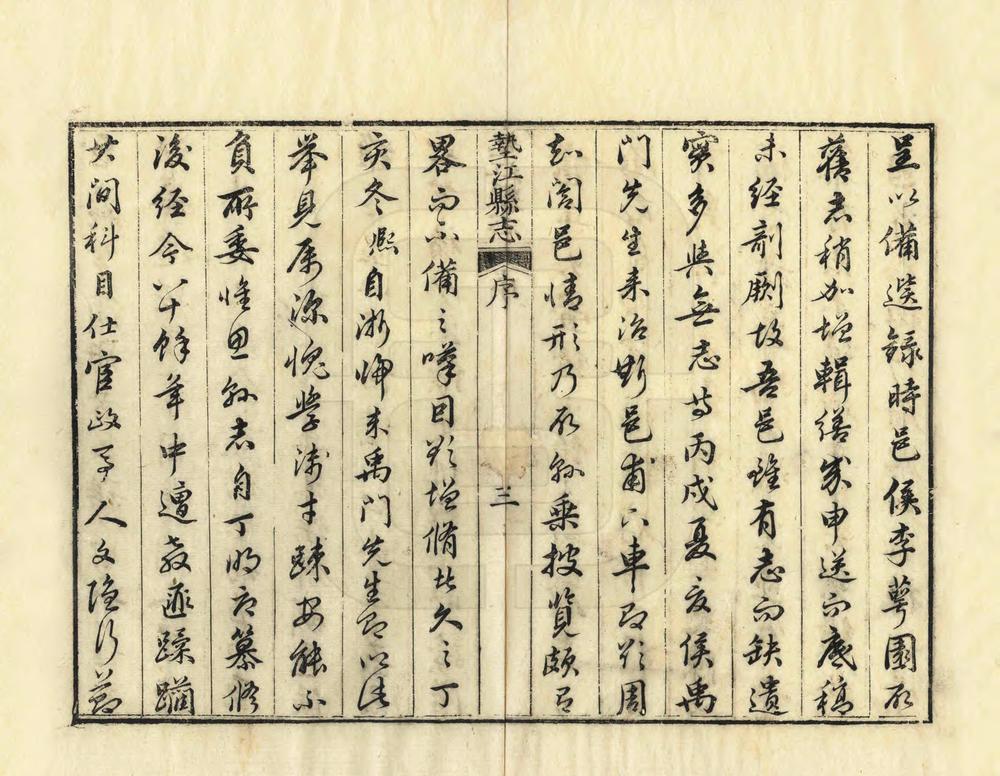 呈以備選錄時邑侯李蕚園取
舊志稍加增輯繕家申送而底稿
未經剞劂故吾邑雖有志而缺遺
實多與無志等丙戌夏夏侯禹
門先生来治斯邑甫下車即欲周
知闔邑情形乃取縣乗披覽頗有
墊江縣志 序 三
畧而不備之嘆因欲增脩者久之丁
亥冬熙自浙歸来禹門先生即以此
舉見属深愧學淺才踈安能不
負所委惟思縣志自丁明府纂修
後經今八十餘年中遭教匪蹂躪
其間科目仕宦政事人文隐行節